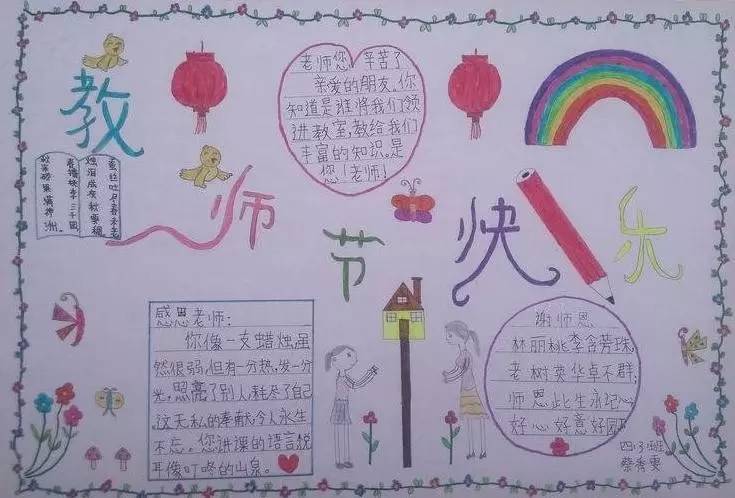 教师节快乐
老师您，辛苦了
亲爱的朋友，你
知道是谁将我们领
进教室，教给我们
丰富的知识。是
您！老师！
蚕丝吐尽春未老
烛泪成灰秋更稠
春播桃李三千圃
秋来硕果满神洲。
感恩老师：
你像一支蜡烛，虽
然很弱，但有一分热，发一分
光，照亮了别人，耗尽了自己
，这无私的奉献，令人永生
不忘。您讲课的语言，悦
耳像叮咚的山泉。
谢师恩
林丽桃李含芳珠，
老树英华卓不群，
师恩此生永记心
好心好意好园
四.3班